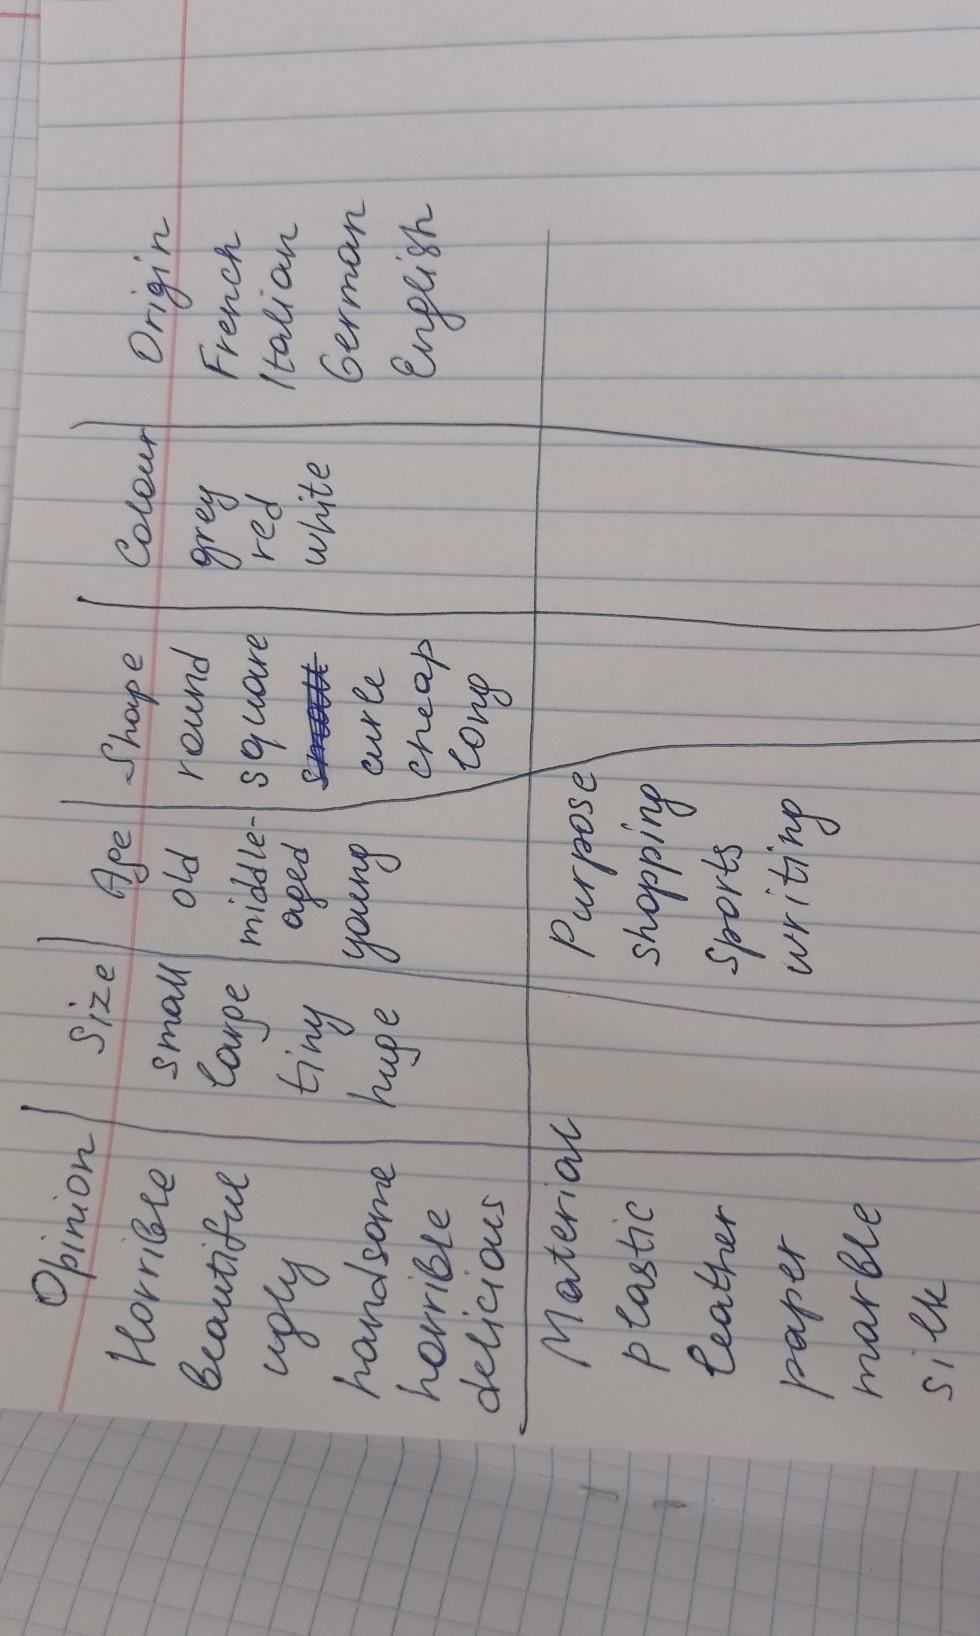 Opinion
Horrible
Beautiful
ugly
handsome
horrible
delicious
Size
small
large
tiny
huge
Age
old
middle-
aged
young
Shape
round
square
small
curle
cheap
long
Colour
grey
red
white
Origin
French
Italian
German
English
Material
plastic
leather
paper
marble
silk
Purpose
shopping
sports
writing